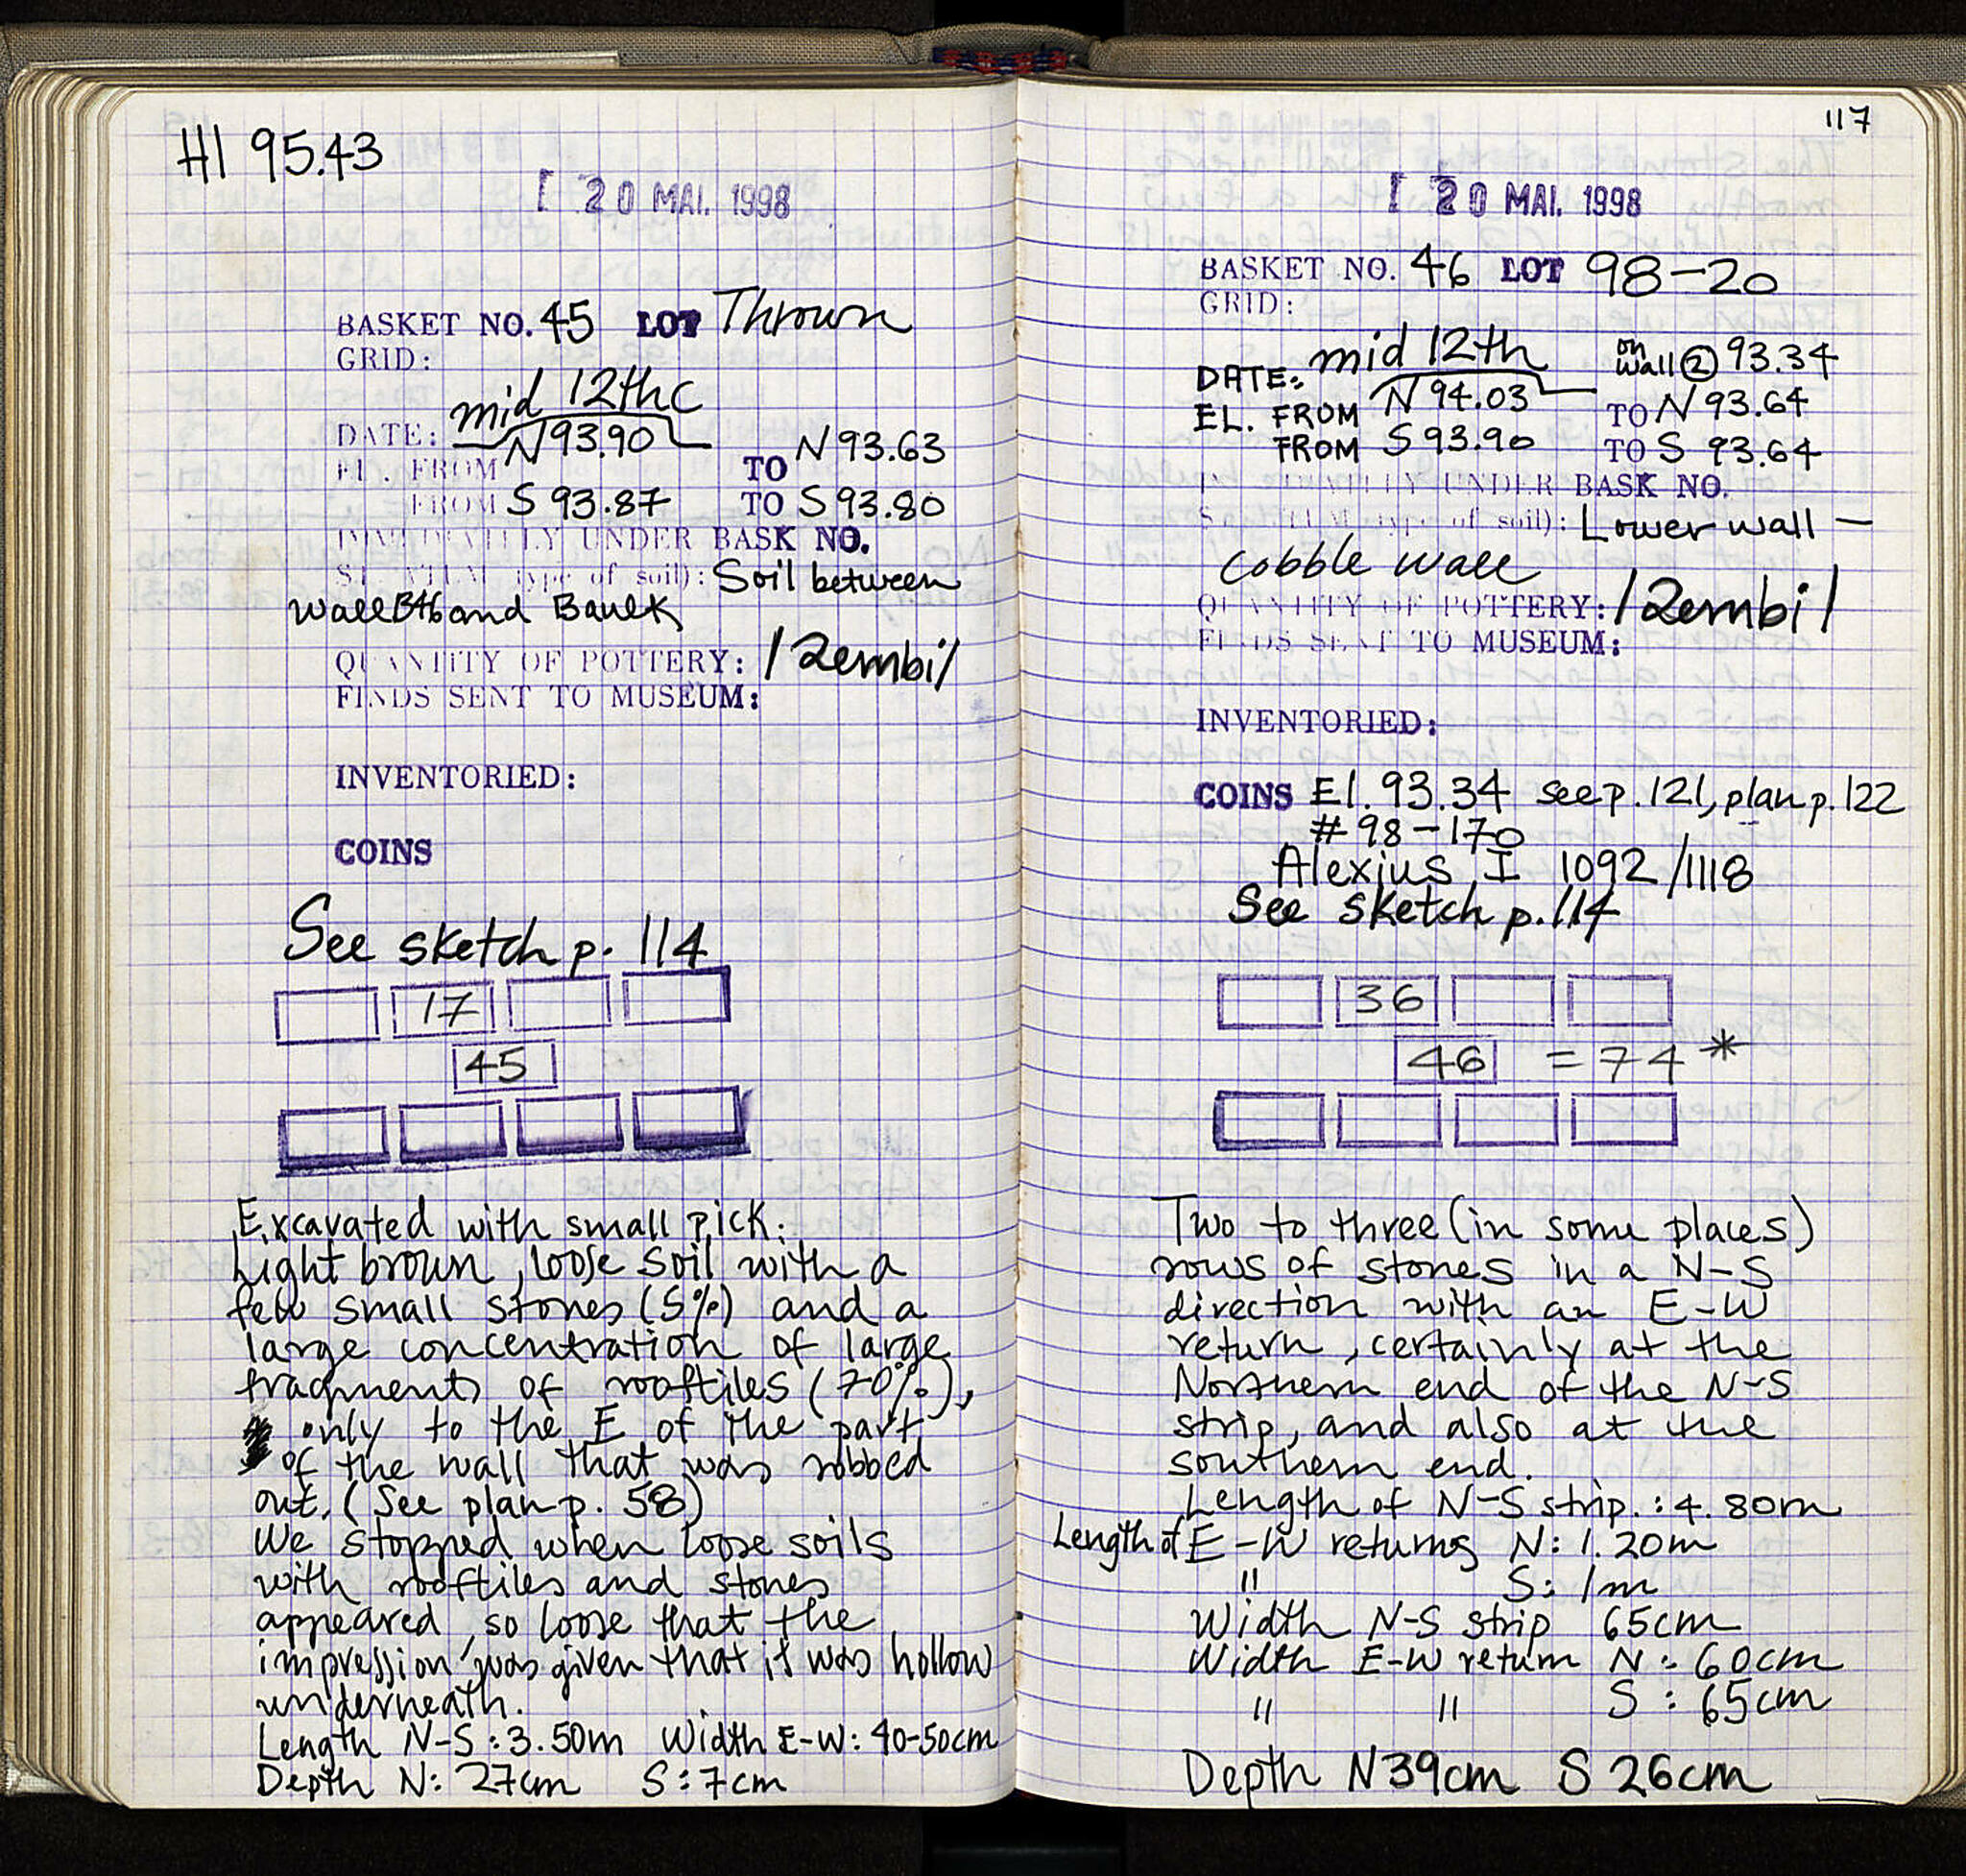 HI 95.43
20 MAI. 1998
BASKET NO. 45 LOT Thrown
GRID:
mid 12thc
DATE: N 93.90 N 93.63
EL. FROM TO
FROM S 93.87 TO S 93.80
IMMEDIATELY UNDER BASK NO.
STRATUM (type of soil): Soil between
wall B46 and Baulk
QUANTITY OF POTTERY: 1 Zembil
FINDS SENT TO MUSEUM:
INVENTORIED:
COINS
See sketch p. 114
17
45
Excavated with small pick.
Light brown, loose soil with a
few small stones (5%) and a
large concentration of large
fragments of rooftiles (70%),
only to the E of the part
of the wall that was robbed
out. (See plan p. 58)
We stopped when loose soils
with rooftiles and stones
appeared, so loose that the
impression was given that it was hollow
underneath.
Length N-S: 3.50m Width E-W: 40-50cm
Depth N: 27cm S: 7cm
117
20 MAI. 1998
BASKET NO. 46 LOT 98-20
GRID:
mid 12th on wall @ 93.34
DATE:
EL. FROM N 94.03 TO N 93.64
FROM S 93.90 TO S 93.64
IMMEDIATELY UNDER BASK NO.
STRATUM (type of soil): Lower wall —
cobble wall
QUANTITY OF POTTERY: 1 Zembil
FINDS SENT TO MUSEUM:
INVENTORIED:
COINS El. 93.34 see p. 121, plan p. 122
# 98-170
Alexius I 1092/1118
See sketch p. 114
36
46 = 74 *
Two to three (in some places)
rows of stones in a N-S
direction with an E-W
return, certainly at the
Northern end of the N-S
strip, and also at the
southern end.
Length of N-S strip.: 4.80m
Length of E-W returns N: 1.20m
" S: 1m
Width N-S strip 65cm
Width E-W return N: 60cm
" " S: 65cm
Depth N 39cm S 26cm